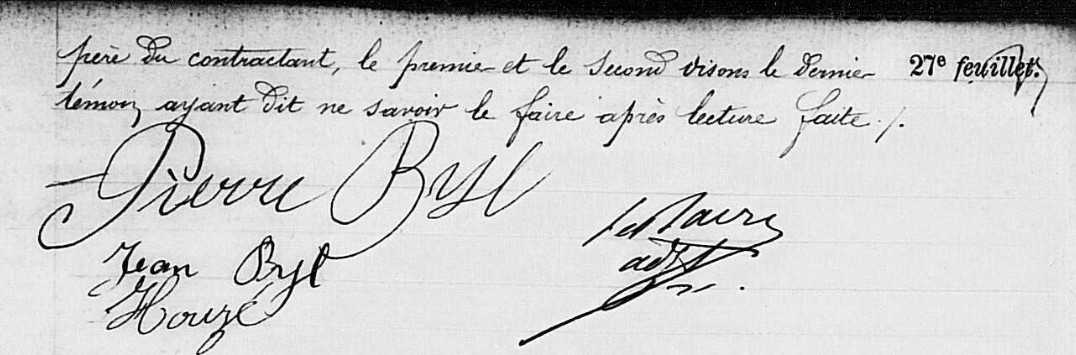 père du contractant, le premier et le second disons le dernier 27e feuillet.
témoin ayant dit ne savoir le faire après lecture faite ./.
Pierre Byl
Jean Byl
Houzé